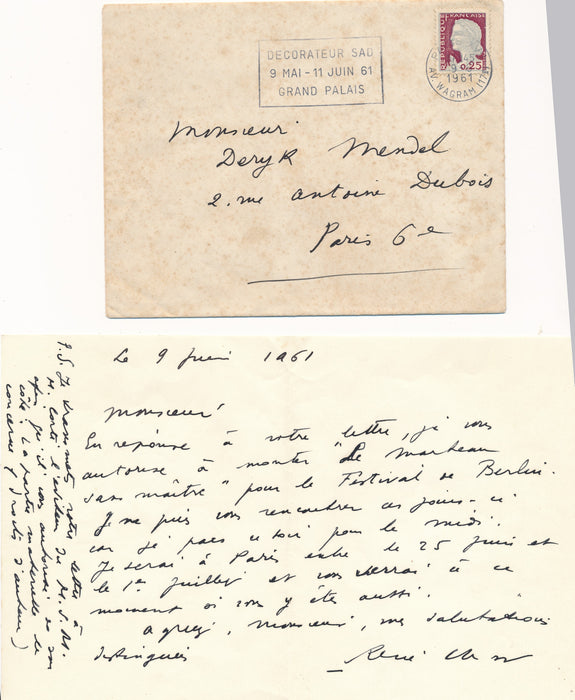 DECORATEUR SAD
9 MAI - 11 JUIN 61
GRAND PALAIS
REPUBLIQUE FRANÇAISE
0,25
45
9 -
1961
AV. WAGRAM (17e)
Monsieur
Deryk Mendel
2. rue Antoine Dubois
Paris 6e
Le 9 juin 1961
Monsieur
En réponse à votre lettre, je vous
autorise à monter "Le Marteau
sans maître" pour le Festival de Berlin.
Je ne puis vous rencontrer ces jours-ci
car je pars ce soir pour le midi.
Je serai à Paris entre le 25 juin et
le 1er juillet et vous verrai à ce
moment si vous y êtes aussi.
Agréez, Monsieur, mes salutations
distinguées
René Char
P.S. Je transmets votre lettre à
M. l'éditeur du M.S.M.
afin qu'il vous autorise de son
côté. (La partie matérielle le
concerne, droits d'auteur)